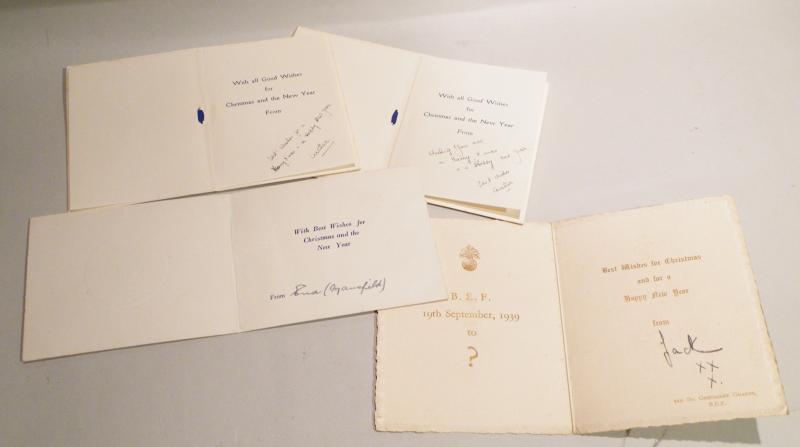 With all Good Wishes
for
Christmas and the New Year
From
With all Good Wishes
for
Christmas and the New Year
From
Wishing you all
a Happy X mas
Happy New Year
Best wishes
With Best Wishes for
Christmas and the
New Year
From Ena (Mansfield)
B. E. F.
19th September, 1939
to
?
Best Wishes for Christmas
and for a
Happy New Year
from
Jack
XX
X.
Grenadier Guards,
B.E.F.